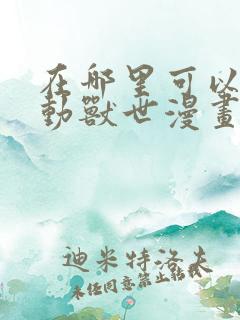 在哪里可以
動獸世漫畫
迪米特洛夫
未经同意禁止转载